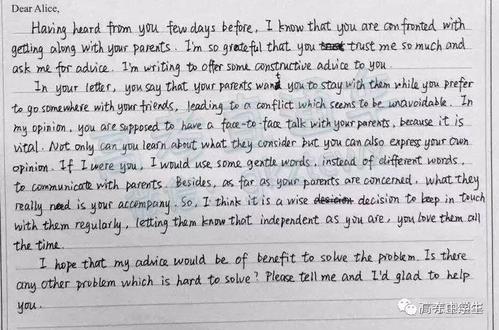 Dear Alice,
Having heard from you few days before, I know that you are confronted with
getting along with your parents. I'm so grateful that you trust me so much and
ask me for advice. I'm writing to offer some constructive advice to you.
In your letter, you say that your parents want you to stay with them while you prefer
to go somewhere with your friends, leading to a conflict which seems to be unavoidable. In
my opinion, you are supposed to have a face-to-face talk with your parents, because it is
vital. Not only can you learn about what they consider but you can also express your own
opinion. If I were you, I would use some gentle words, instead of different words,
to communicate with parents. Besides, as far as your parents are concerned, what they
really need is your accompany. So, I think it is a wise decision to keep in touch
with them regularly, letting them know that independent as you are, you love them all
the time.
I hope that my advice would be of benefit to solve the problem. Is there
any other problem which is hard to solve? Please tell me and I'd glad to help
you.